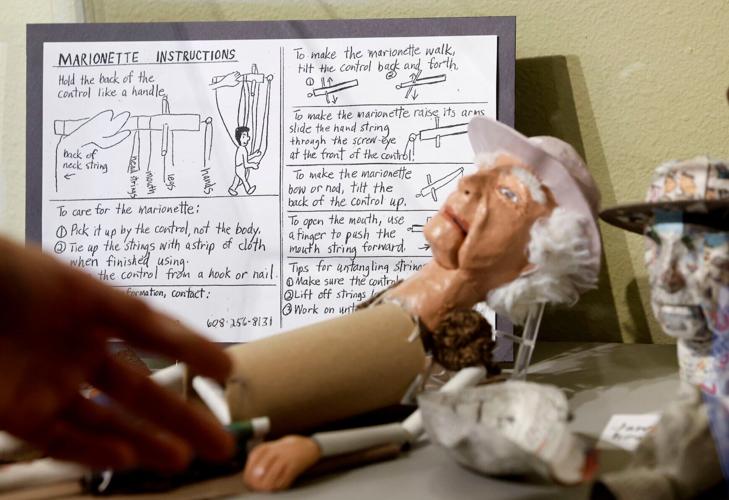 MARIONETTE INSTRUCTIONS
Hold the back of the
control like a handle.
back of
neck string
head strings
mouth
legs
hands
To care for the marionette:
① Pick it up by the control, not the body.
② Tie up the strings with a strip of cloth
when finished using.
the control from a hook or nail.
formation, contact:
608-256-8131
To make the marionette walk,
tilt the control back and forth.
① ②
To make the marionette raise its arms
slide the hand string
through the screw-eye
at the front of the control.
To make the marionette
bow or nod, tilt the
back of the control up.
To open the mouth, use
a finger to push the
mouth string forward.
Tips for untangling strin
① Make sure the control
② Lift off strings
③ Work on unt